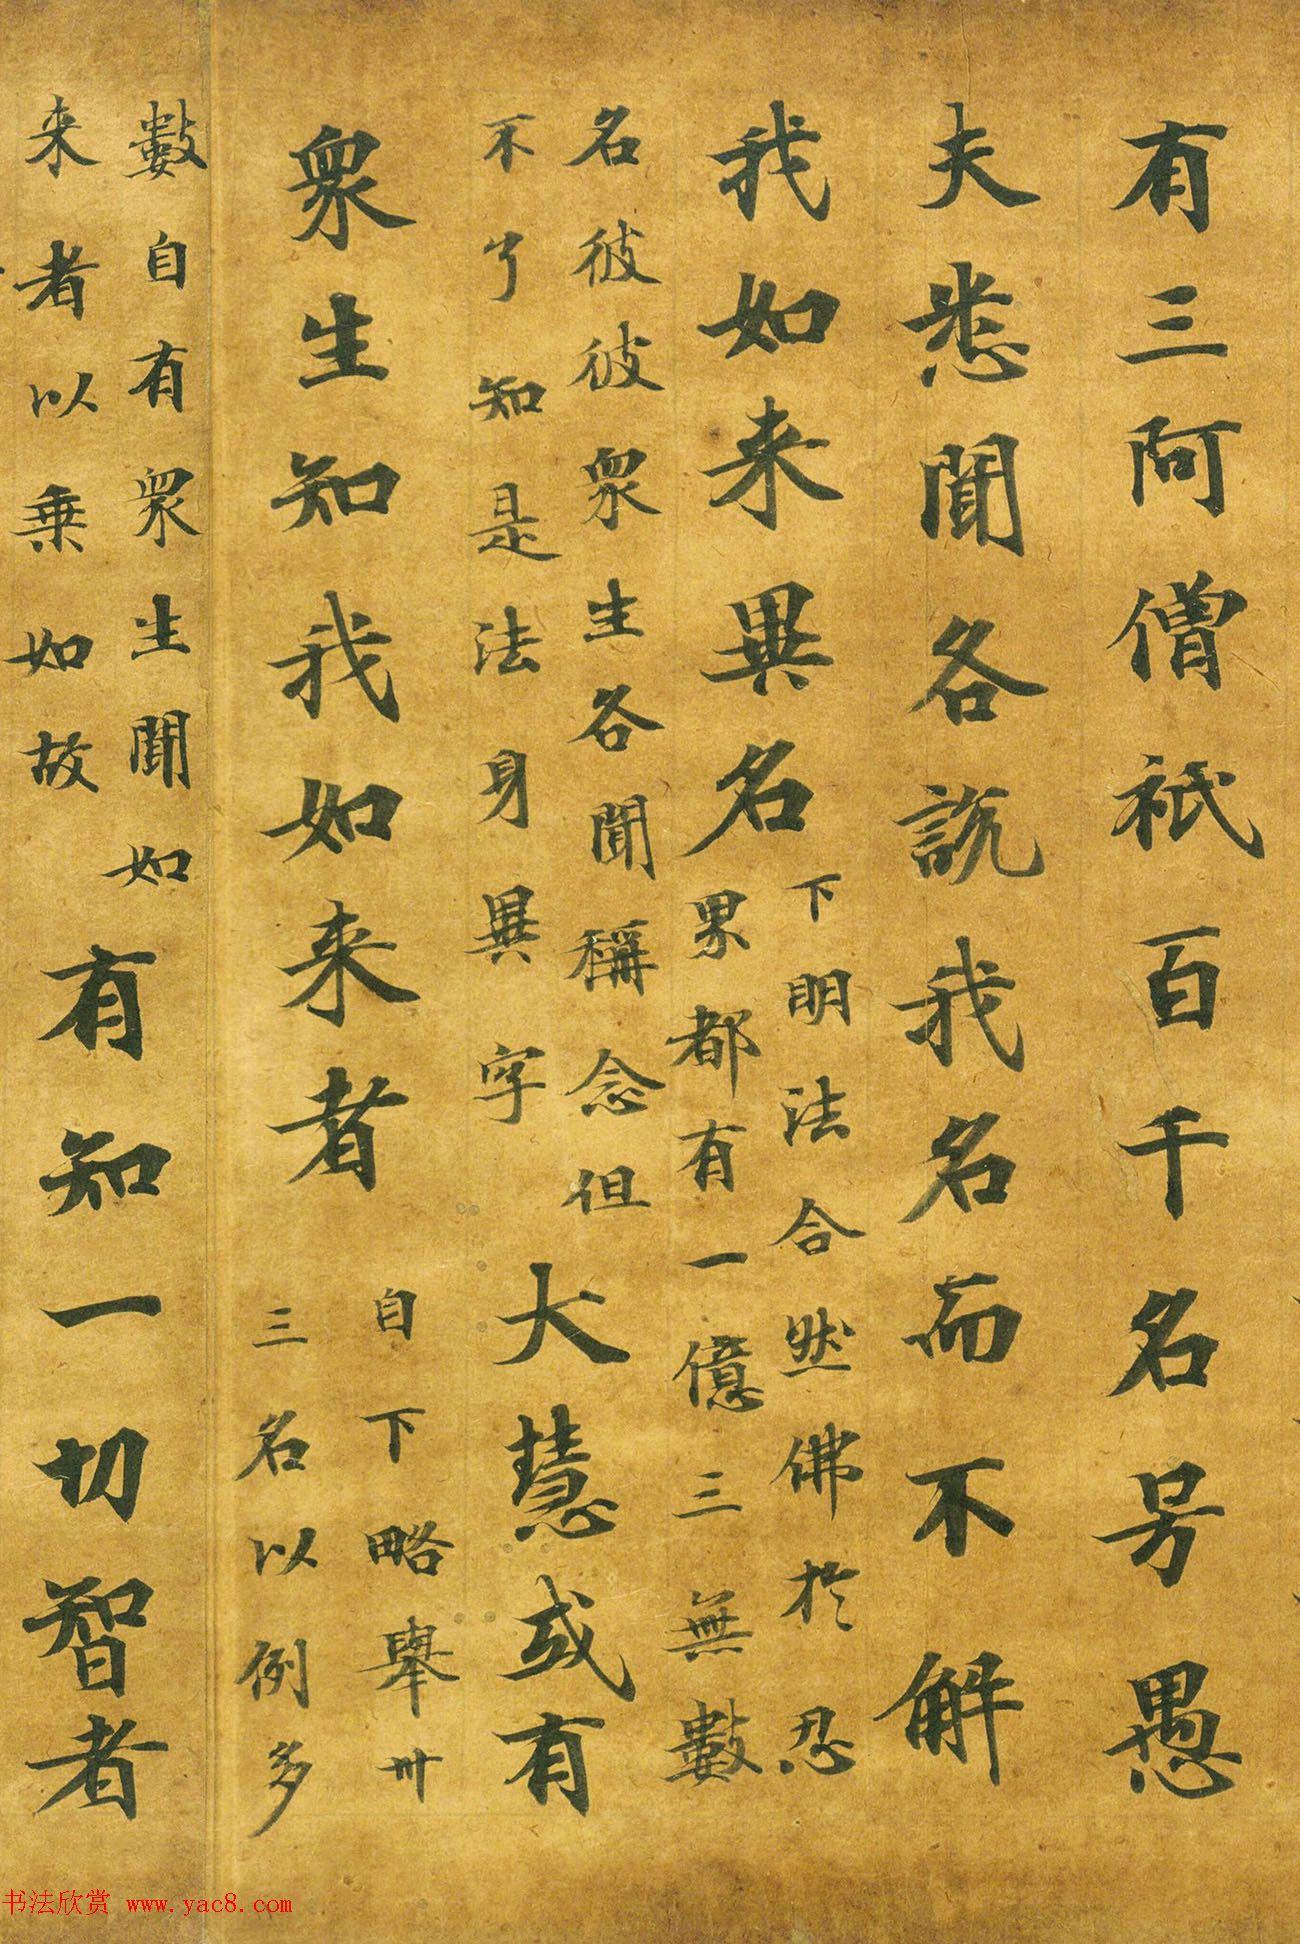 有三阿僧祇百千名号愚
夫悉聞各説我名而不解
我如来異名
下明法合然佛於忍
界都有一億三無數
名彼彼衆生各聞稱念但
不了知是法身異字
大慧或有
衆生知我如来者
自下略舉卅
三名以例多
數自有衆生聞如
来者以乗如故
有知一切智者
书法欣赏 www.yac8.com